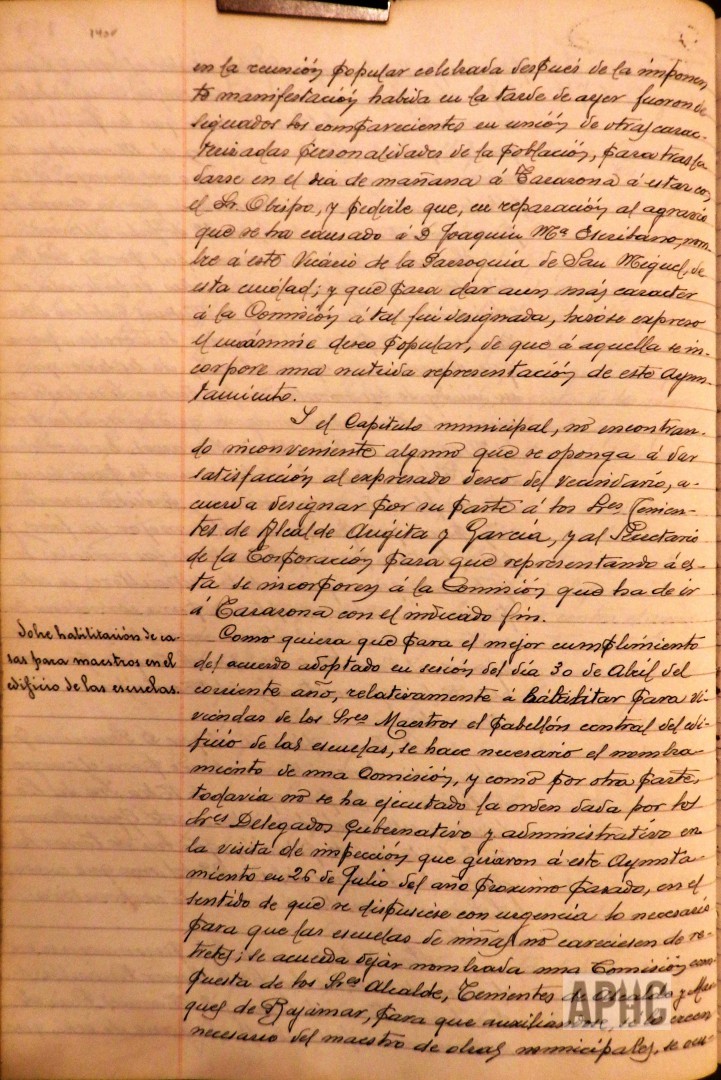 1400
en la reunión popular celebrada después de la imponen
te manifestación habida en la tarde de ayer fueron de
signados los comparecientes en unión de otras carac-
terizadas personalidades de la población, para trasla-
darse en el día de mañana á Tarazona á estar con
el Sr. Obispo, y pedirle que, en reparación al agravio
que se ha causado á D Joaquin Mª Escribano, nom-
bre á este Vicario de la Parroquia de San Miguel, de
esta ciudad; y que para dar aun más caracter
á la Comisión á tal fin designada, hízose expreso
el unánime deseo popular, de que á aquella se in-
corpore una nutrida representación de este Ayun-
tamiento.
Y el Capítulo municipal, no encontran-
do inconveniente alguno que se oponga á dar
satisfacción al expresado deseo del vecindario, a-
cuerda designar por su parte á los Sres Tenien-
tes de Alcalde Augita y García, y al Secretario
de la Corporación para que representando á es-
ta se incorporen á la Comisión que ha de ir
á Tarazona con el indicado fin.
Sobre habilitación de ca-
sas para maestros en el
edificio de las escuelas.
Como quiera que para el mejor cumplimiento
del acuerdo adoptado en sesión del día 30 de Abril del
corriente año, relativamente á habilitar para vi-
viendas de los Sres Maestros el pabellón central del edi-
ficio de las escuelas, se hace necesario el nombra-
miento de una Comisión, y como por otra parte,
todavía no se ha ejecutado la orden dada por los
Sres Delegados gubernativo y administrativo en
la visita de inspección que giraron á este Ayunta-
miento en 26 de Julio del año próximo pasado, en el
sentido de que se dispusiese con urgencia lo necesario
para que las escuelas de niñas no careciesen de re-
tretes; se acuerda dejar nombrada una Comisión com-
puesta de los Sres Alcalde, Tenientes de Alcalde y Mar-
qués de Bajamar, para que auxiliados, si lo creen
necesario del maestro de obras municipales, se ocu-
APHC